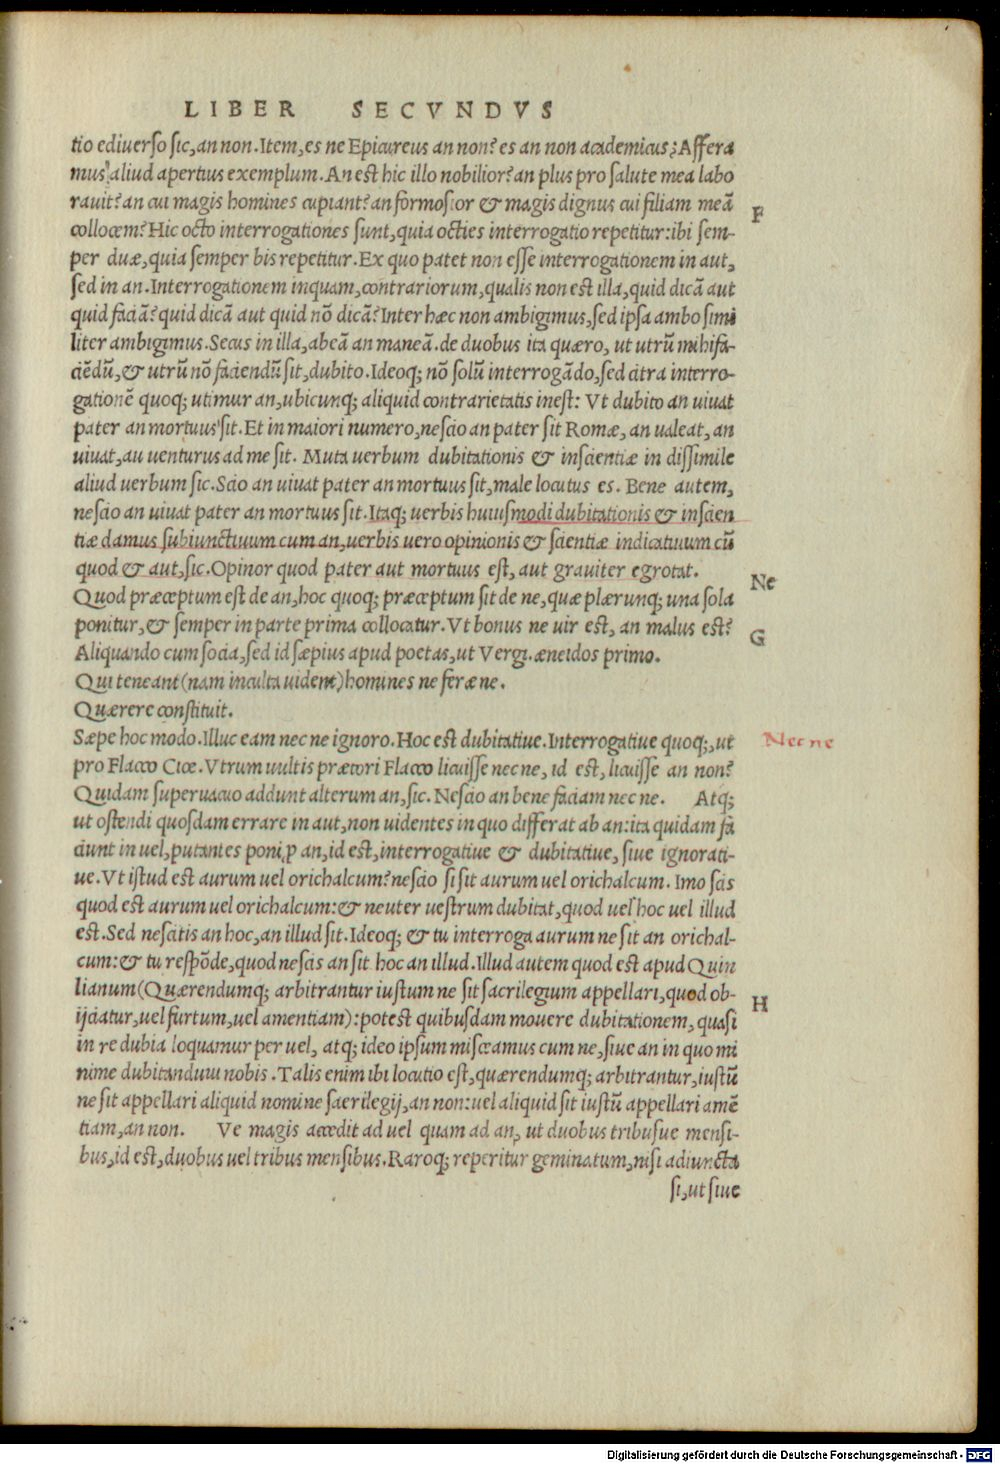 LIBER SECVNDVS
tio ediuerso sic, an non. Item, es ne Epicureus an non? es an non academicus? Affera
mus aliud apertius exemplum. An est hic illo nobilior? an plus pro salute mea labo
rauit? an cui magis homines cupiant? an formosior & magis dignus cui filiam meã
F
collocem? Hic octo interrogationes sunt, quia octies interrogatio repetitur: ibi sem-
per duæ, quia semper bis repetitur. Ex quo patet non esse interrogationem in aut,
sed in an. Interrogationem inquam, contrariorum, qualis non est illa, quid dicã aut
quid faciã? quid dicã aut quid nõ dicã? Inter hæc non ambigimus, sed ipsa ambo simi
liter ambigimus. Secus in illa, abeã an maneã. de duobus ita quæro, ut utrũ mihi fa-
ciẽdũ, & utrũ nõ faciendũ sit, dubito. Ideoq; nõ solũ interrogãdo, sed citra interro-
gationẽ quoq; utimur an, ubicunq; aliquid contrarietatis inest: Vt dubito an uiuat
pater an mortuus sit. Et in maiori numero, nescio an pater sit Romæ, an ualeat, an
uiuat, au uenturus ad me sit. Muta uerbum dubitationis & inscientiæ in dissimile
aliud uerbum sic. Scio an uiuat pater an mortuus sit, male locutus es. Bene autem,
nescio an uiuat pater an mortuus sit. Itaq; uerbis huiusmodi dubitationis & inscien
tiæ damus subiunctiuum cum an, uerbis uero opinionis & scientiæ indicatiuum cũ
quod & aut, sic. Opinor quod pater aut mortuus est, aut grauiter egrotat.
Ne
Quod præceptum est de an, hoc quoq; præceptum sit de ne, quæ plærunq; una sola
ponitur, & semper in parte prima collocatur. Vt bonus ne uir est, an malus est?
G
Aliquando cum socia, sed id sæpius apud poetas, ut Vergi. æneidos primo.
Qui teneant (nam inculta uidemt) homines ne feræ ne.
Quærere constituit.
Sæpe hoc modo. Illuc eam nec ne ignoro. Hoc est dubitatiue. Interrogatiue quoq;, ut
Nec ne
pro Flacco Cice. Vtrum uultis prætori Flacco licuisse nec ne, id est, licuisse an non?
Quidam superuacuo addunt alterum an, sic. Nescio an bene faciam nec ne. Atq;
ut ostendi quosdam errare in aut, non uidentes in quo differat ab an: ita quidam fa
ciunt in uel, putantes poni p an, id est, interrogatiue & dubitatiue, siue ignorati-
ue. Vt istud est aurum uel orichalcum? nescio si sit aurum uel orichalcum. Imo scis
quod est aurum uel orichalcum: & neuter uestrum dubitat, quod uel hoc uel illud
est. Sed nescitis an hoc, an illud sit. Ideoq; & tu interroga aurum ne sit an orichal-
cum: & tu respõde, quod nescis an sit hoc an illud. Illud autem quod est apud Quin
lianum (Quærendumq; arbitrantur iustum ne sit sacrilegium appellari, quod ob-
H
ijciatur, uel furtum, uel amentiam): potest quibusdam mouere dubitationem, quasi
in re dubia loquamur per uel, atq; ideo ipsum misceamus cum ne, siue an in quo mi
nime dubitanduui nobis. Talis enim ibi locutio est, quærendumq; arbitrantur, iustũ
ne sit appellari aliquid nomine sacrilegij, an non: uel aliquid sit iustũ appellari amẽ
tiam, an non. Ve magis accedit ad uel quam ad an, ut duobus tribusue mensi-
bus, id est, duobus uel tribus mensibus. Raroq; reperitur geminatum, nisi adiuncta
si, ut siue
Digitalisierung gefördert durch die Deutsche Forschungsgemeinschaft - DFG